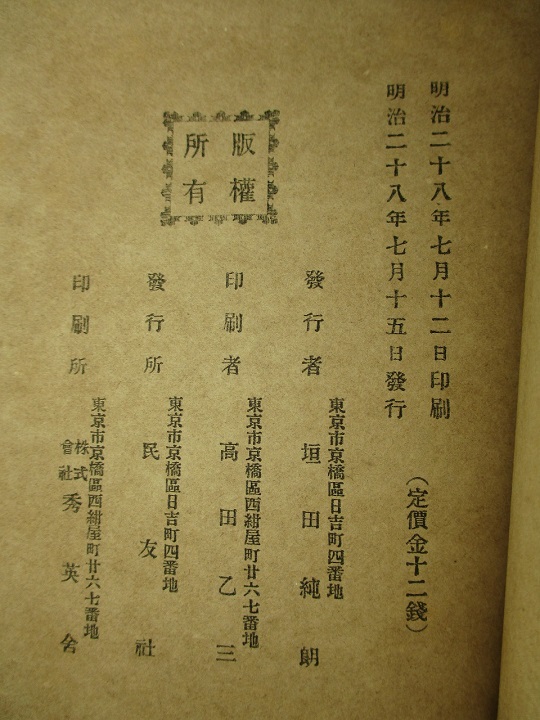 明治二十八年七月十二日印刷
明治二十八年七月十五日發行
（定價金十二錢）
版權
所有
東京市京橋區日吉町四番地
發行者 垣田純朗
東京市京橋區西紺屋町廿六七番地
印刷者 高田乙三
東京市京橋區日吉町四番地
發行所 民友社
東京市京橋區西紺屋町廿六七番地
印刷所 株式會社秀英舍